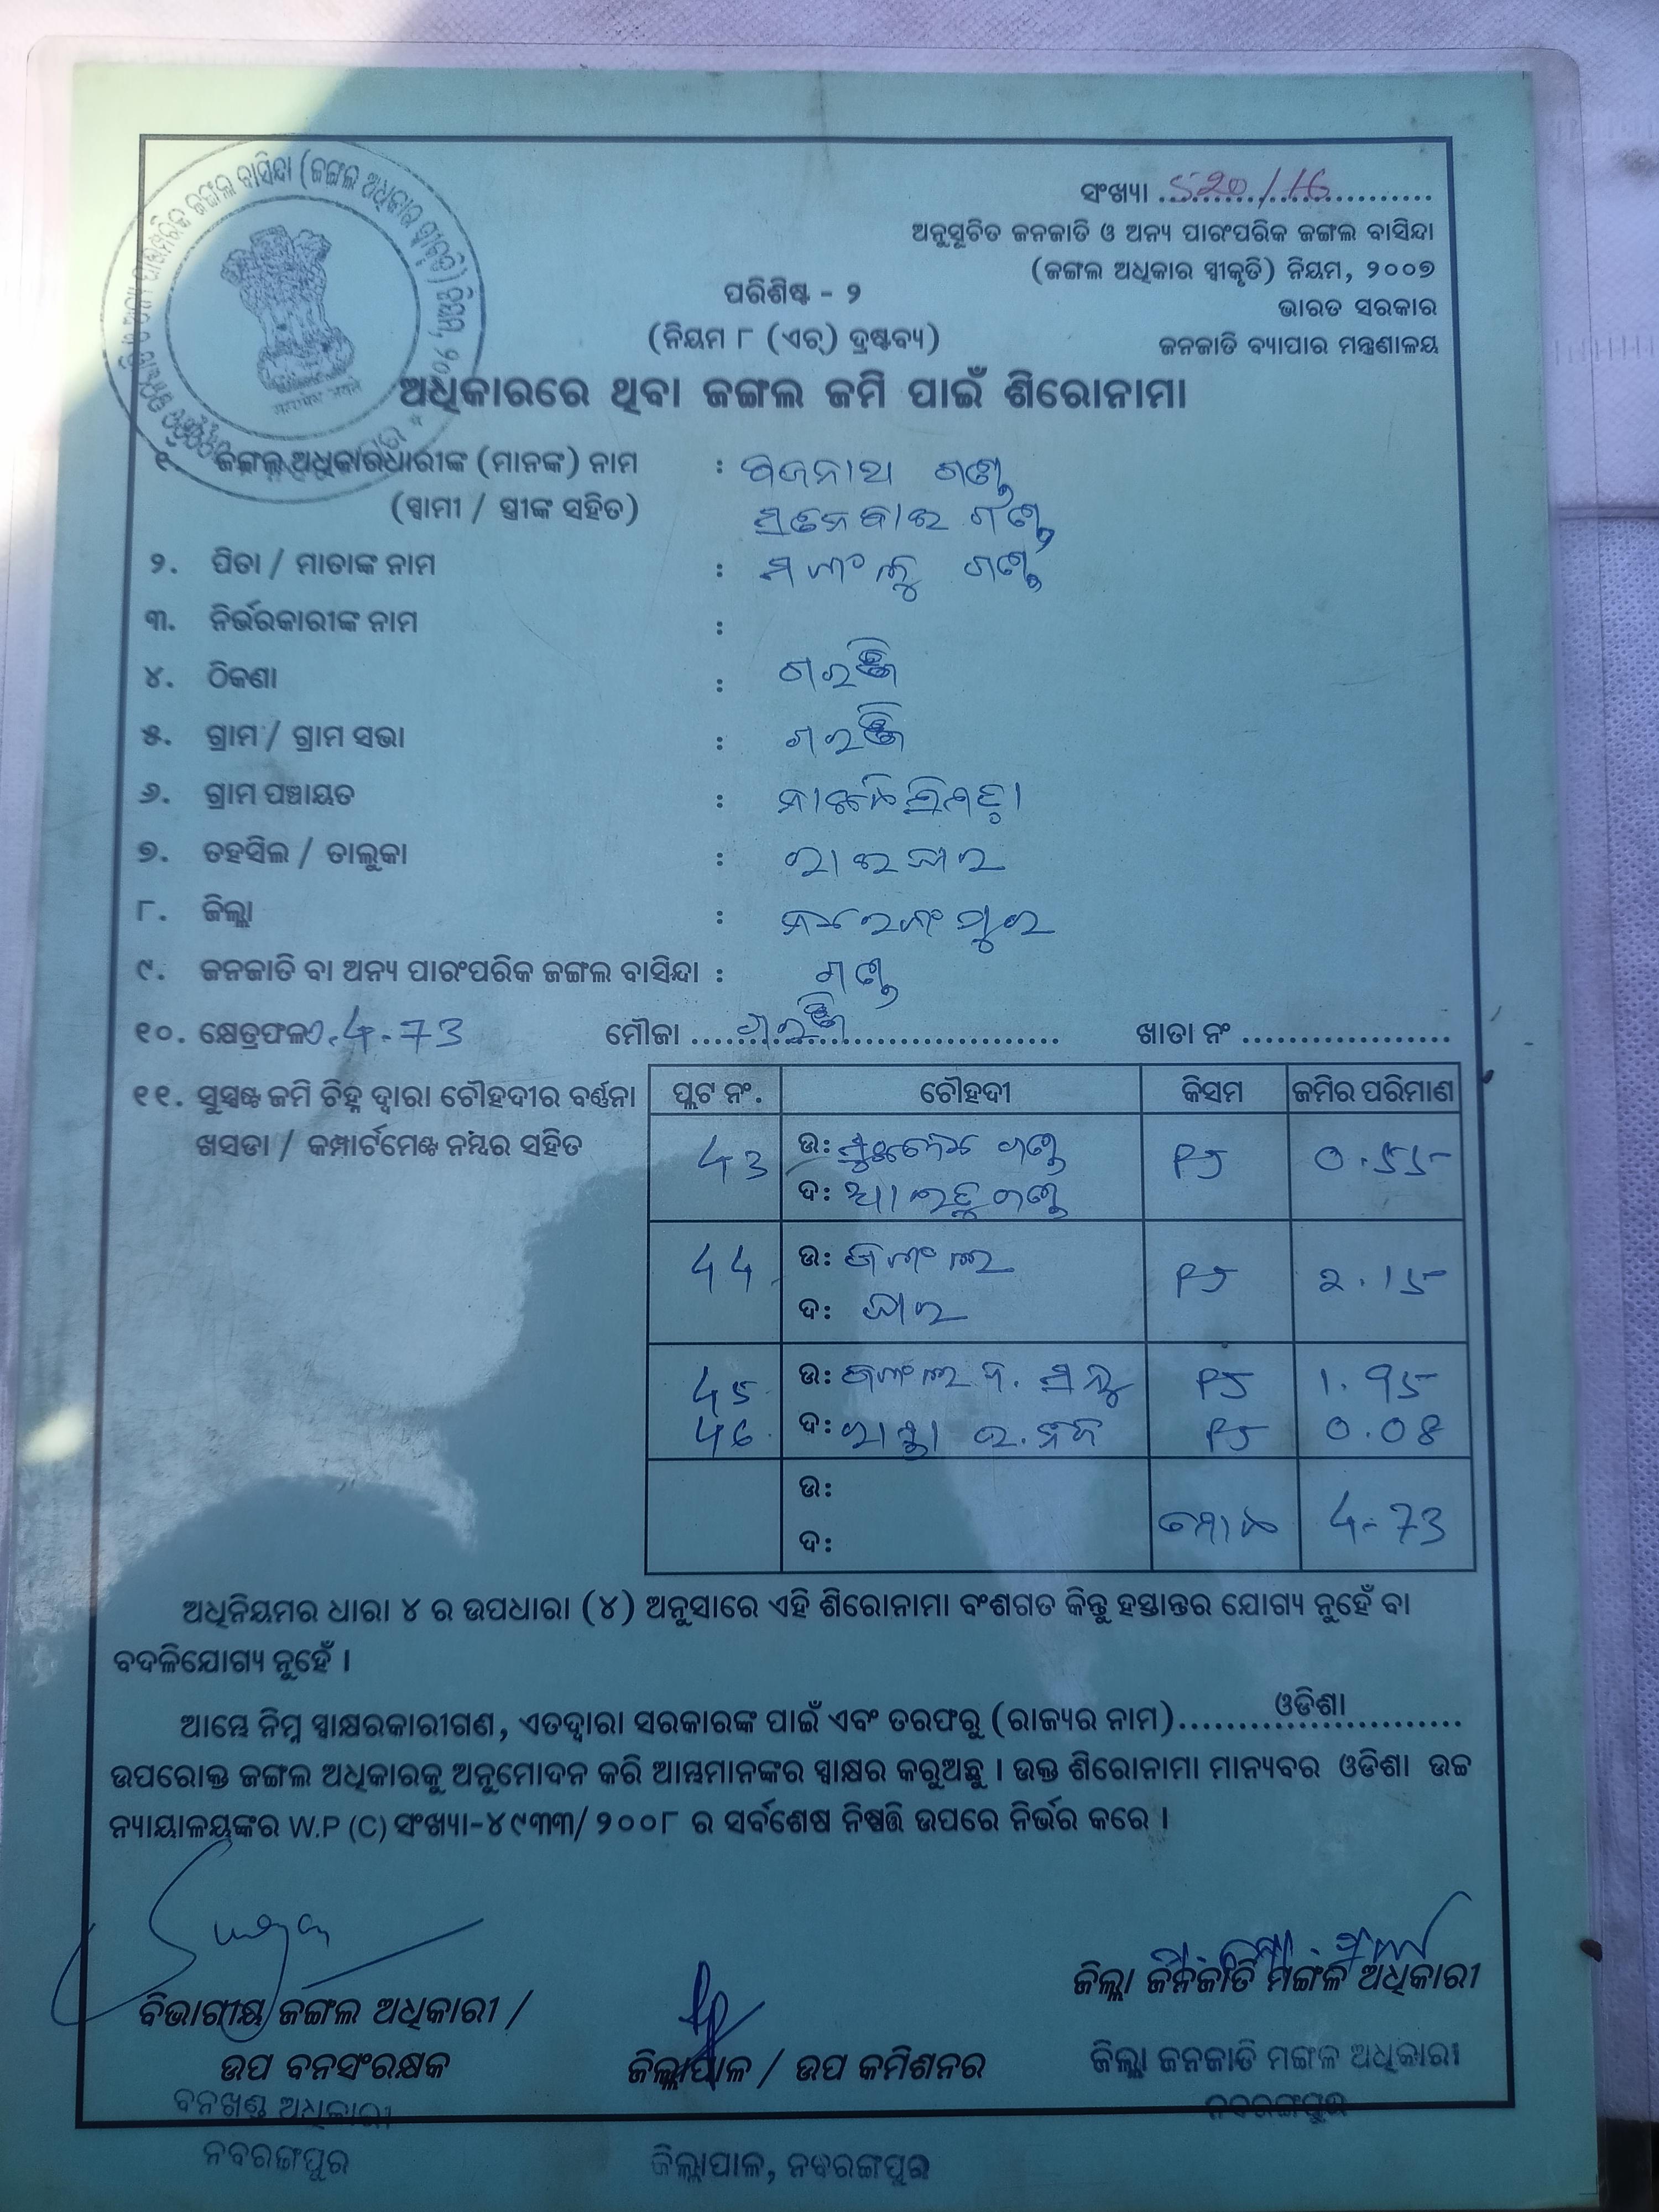 ସଂଖ୍ୟା 520/16
ଅନୁସୂଚିତ ଜନଜାତି ଓ ଅନ୍ୟ ପାରଂପରିକ ଜଙ୍ଗଲ ବାସିନ୍ଦା
(ଜଙ୍ଗଲ ଅଧିକାର ସ୍ୱୀକୃତି) ନିୟମ, ୨୦୦୭
ଭାରତ ସରକାର
ଜନଜାତି ବ୍ୟାପାର ମନ୍ତ୍ରଣାଳୟ
ପରିଶିଷ୍ଟ - ୨
(ନିୟମ ୮ (ଏଚ୍) ଦ୍ରଷ୍ଟବ୍ୟ)
ଅଧିକାରରେ ଥିବା ଜଙ୍ଗଲ ଜମି ପାଇଁ ଶିରୋନାମା
୧. ଜଙ୍ଗଲ ଅଧିକାରଧାରୀଙ୍କ (ମାନଙ୍କ) ନାମ : ଗଣ୍ଡ
(ସ୍ୱାମୀ / ସ୍ତ୍ରୀଙ୍କ ସହିତ) ଗଣ୍ଡ
୨. ପିତା / ମାତାଙ୍କ ନାମ : ଗଣ୍ଡ
୩. ନିର୍ଭରକାରୀଙ୍କ ନାମ :
୪. ଠିକଣା :
୫. ଗ୍ରାମ / ଗ୍ରାମ ସଭା :
୬. ଗ୍ରାମ ପଞ୍ଚାୟତ :
୭. ତହସିଲ / ତାଲୁକା : ରାଇଘର
୮. ଜିଲ୍ଲା : ନବରଂଗପୁର
୯. ଜନଜାତି ବା ଅନ୍ୟ ପାରଂପରିକ ଜଙ୍ଗଲ ବାସିନ୍ଦା : ଗଣ୍ଡ
୧୦. କ୍ଷେତ୍ରଫଳ 4.73 ମୌଜା ଖାତା ନଂ
୧୧. ସୁସ୍ପଷ୍ଟ ଜମି ଚିହ୍ନ ଦ୍ୱାରା ଚୌହଦୀର ବର୍ଣ୍ଣନା
ଖସଡା / କମ୍ପାର୍ଟମେଣ୍ଟ ନମ୍ବର ସହିତ
ପ୍ଲଟ ନଂ. ଚୌହଦୀ କିସମ ଜମିର ପରିମାଣ
43 ଉ: ଗଣ୍ଡ PJ 0.55
ଦ: ଗଣ୍ଡ
44 ଉ: ଜଂଗଲ PJ 2.15
ଦ:
45 ଉ: ଜଂଗଲ PJ 1.95
46 ଦ: ରାସ୍ତା PJ 0.08
ଉ:
ଦ: ମୋଟ 4-73
ଅଧିନିୟମର ଧାରା ୪ ର ଉପଧାରା (୪) ଅନୁସାରେ ଏହି ଶିରୋନାମା ବଂଶଗତ କିନ୍ତୁ ହସ୍ତାନ୍ତର ଯୋଗ୍ୟ ନୁହେଁ ବା
ବଦଳିଯୋଗ୍ୟ ନୁହେଁ ।
ଆମ୍ଭେ ନିମ୍ନ ସ୍ୱାକ୍ଷରକାରୀଗଣ, ଏତଦ୍ଦ୍ୱାରା ସରକାରଙ୍କ ପାଇଁ ଏବଂ ତରଫରୁ (ରାଜ୍ୟର ନାମ) ଓଡିଶା
ଉପରୋକ୍ତ ଜଙ୍ଗଲ ଅଧିକାରକୁ ଅନୁମୋଦନ କରି ଆମ୍ଭମାନଙ୍କର ସ୍ୱାକ୍ଷର କରୁଅଛୁ । ଉକ୍ତ ଶିରୋନାମା ମାନ୍ୟବର ଓଡିଶା ଉଚ୍ଚ
ନ୍ୟାୟାଳୟଙ୍କର W.P (C) ସଂଖ୍ୟା-୪୯୩୩/୨୦୦୮ ର ସର୍ବଶେଷ ନିଷ୍ପତ୍ତି ଉପରେ ନିର୍ଭର କରେ ।
ବିଭାଗୀୟ ଜଙ୍ଗଲ ଅଧିକାରୀ / ଜିଲ୍ଲା ଜନଜାତି ମଙ୍ଗଳ ଅଧିକାରୀ
ଉପ ବନସଂରକ୍ଷକ ଜିଲ୍ଲାପାଳ / ଉପ କମିଶନର ଜିଲ୍ଲା ଜନଜାତି ମଙ୍ଗଳ ଅଧିକାରୀ
ବନଖଣ୍ଡ ଅଧିକାରୀ ନବରଙ୍ଗପୁର
ନବରଙ୍ଗପୁର ଜିଲ୍ଲାପାଳ, ନବରଙ୍ଗପୁର